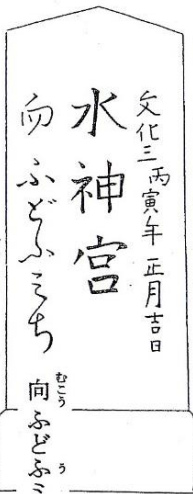 文化三丙寅年 正月吉日
水神宮
向ふどふミち
むこう う
向ふどふミ